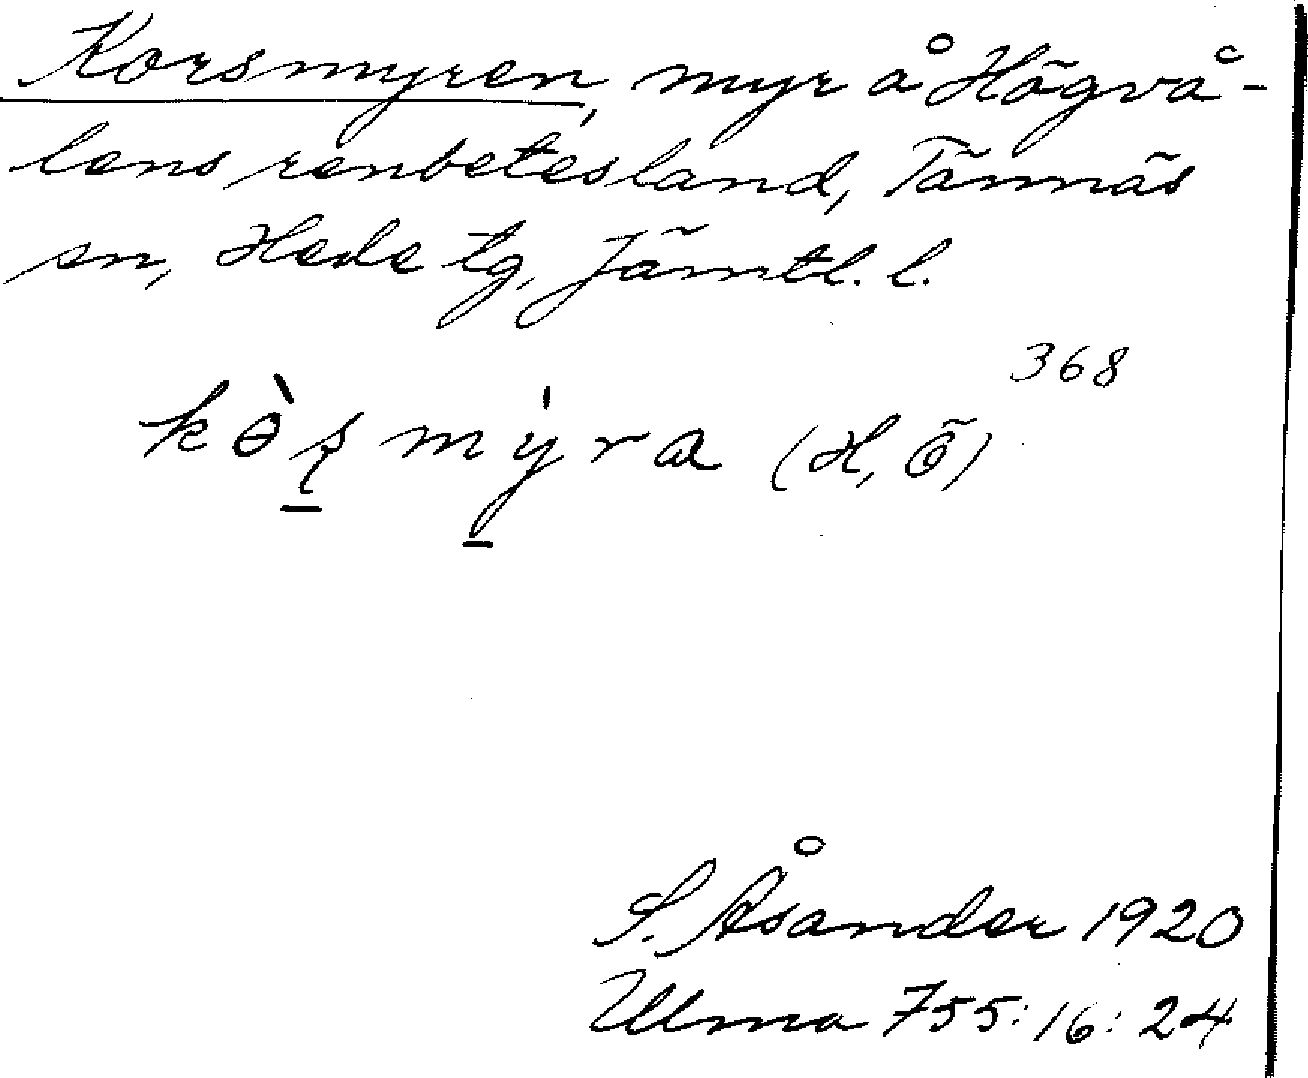 Korsmyren, myr å Högvå-
lens renbetesland, Tännäs
sn, Hede tg, Jämtl. l.
368
kòʂmýra (H, Ö)
S. Åsander 1920
Ulma 755:16:24